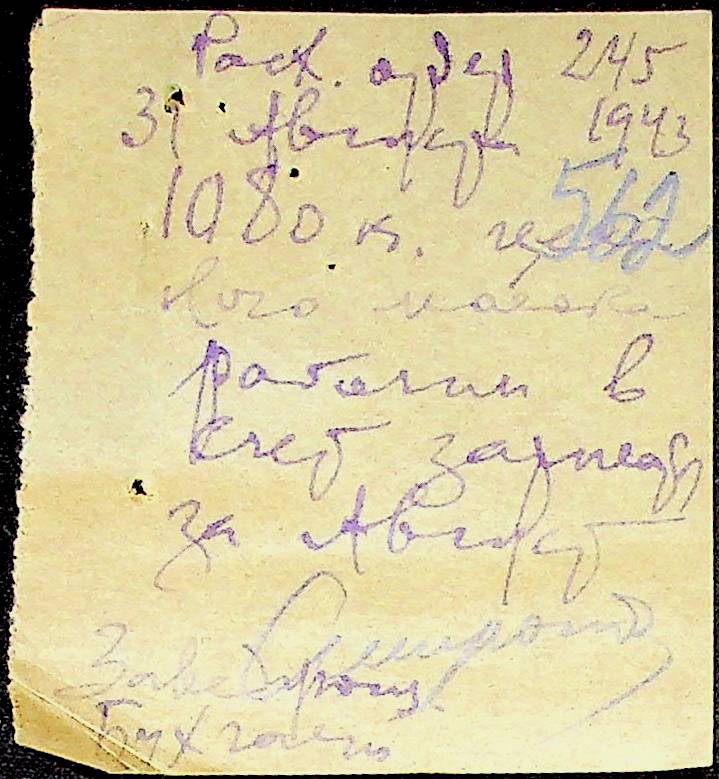 Расх. ордер 245
31 Августа 1943
1080 к.
562
рабочим в
счет зарплаты
за Август
Смирнов
Бухгалтер